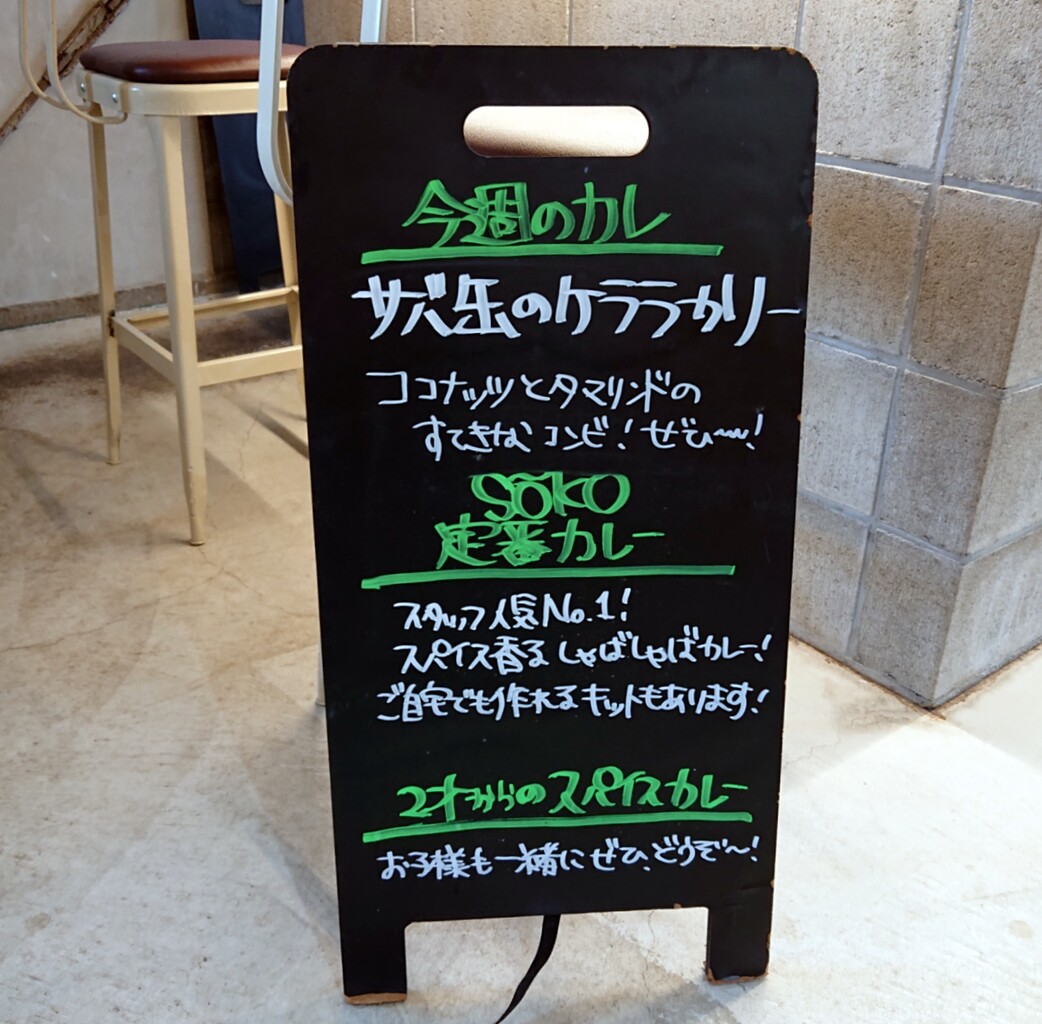 今週のカレ
サバ缶のケララカリー
ココナッツとタマリンドの
すてきなコンビ！ぜひ〜！
SŌKO
定番カレー
スタッフ人気No.1！
スパイス香るしゃばしゃばカレー！
ご自宅でも作れるキットもあります！
2才からのスパイスカレー
お子様も一緒にぜひ、どうぞ〜！